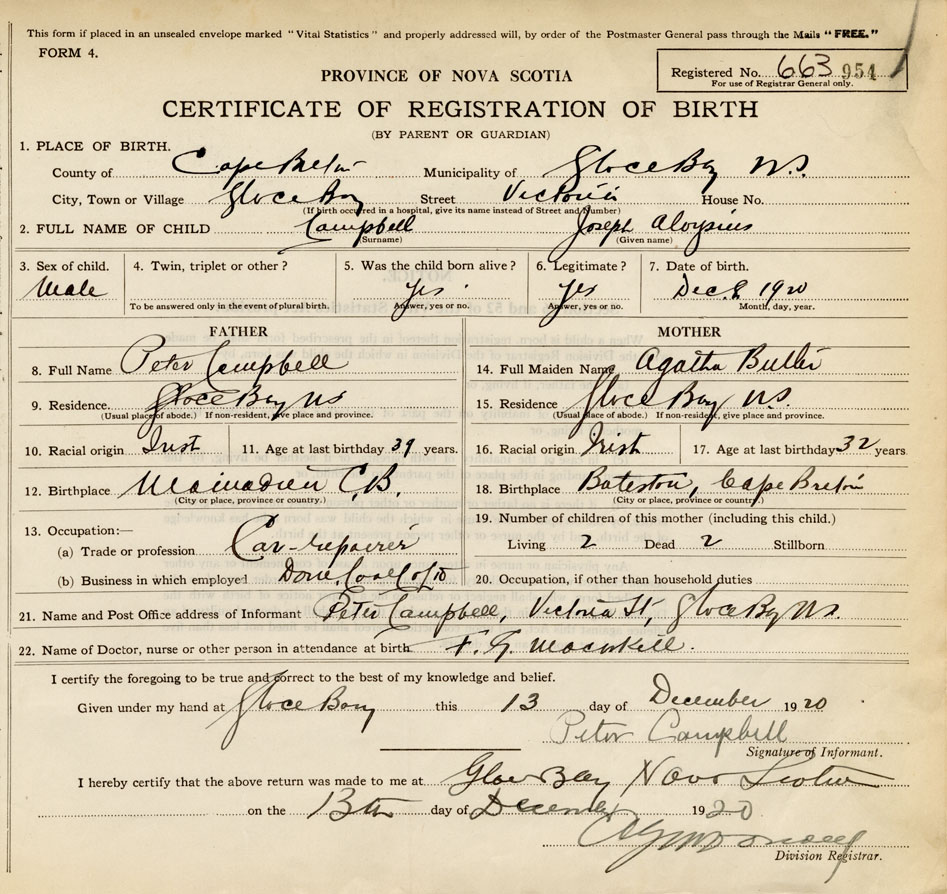 This form if placed in an unsealed envelope marked "Vital Statistics" and properly addressed will, by order of the Postmaster General pass through the Mails "FREE."
FORM 4.
Registered No. 663 954
For use of Registrar General only.
PROVINCE OF NOVA SCOTIA
CERTIFICATE OF REGISTRATION OF BIRTH
(BY PARENT OR GUARDIAN)
1. PLACE OF BIRTH.
County of Cape Breton Municipality of Glace Bay N.S.
City, Town or Village Glace Bay Street Victoria House No.
(If birth occurred in a hospital, give its name instead of Street and Number)
2. FULL NAME OF CHILD Campbell Joseph Aloysius
(Surname) (Given name)
3. Sex of child. 4. Twin, triplet or other? 5. Was the child born alive? 6. Legitimate? 7. Date of birth.
Male Yes Yes Dec. 8 1920
To be answered only in the event of plural birth. Answer, yes or no. Answer, yes or no. Month, day, year.
FATHER MOTHER
8. Full Name Peter Campbell 14. Full Maiden Name Agatha Butler
9. Residence. Glace Bay NS 15. Residence Glace Bay N.S.
(Usual place of abode.) If non-resident, give place and province. (Usual place of abode.) If non-resident, give place and province.
10. Racial origin Irish 11. Age at last birthday 39 years. 16. Racial origin Irish 17. Age at last birthday 32 years
12. Birthplace Mainadieu C.B. 18. Birthplace Bateston, Cape Breton
(City or place, province or country.) (City or place, province or country.)
13. Occupation:— 19. Number of children of this mother (including this child.)
(a) Trade or profession Car-repairer Living 2 Dead 2 Stillborn
(b) Business in which employed Dom. Coal Co Ltd 20. Occupation, if other than household duties
21. Name and Post Office address of Informant Peter Campbell, Victoria St, Glace Bay N.S.
22. Name of Doctor, nurse or other person in attendance at birth F. G. Macaskill.
I certify the foregoing to be true and correct to the best of my knowledge and belief.
Given under my hand at Glace Bay this 13 day of December 1920
Peter Campbell
Signature of Informant.
I hereby certify that the above return was made to me at Glace Bay Nova Scotia
on the 13th day of December 1920
Division Registrar.